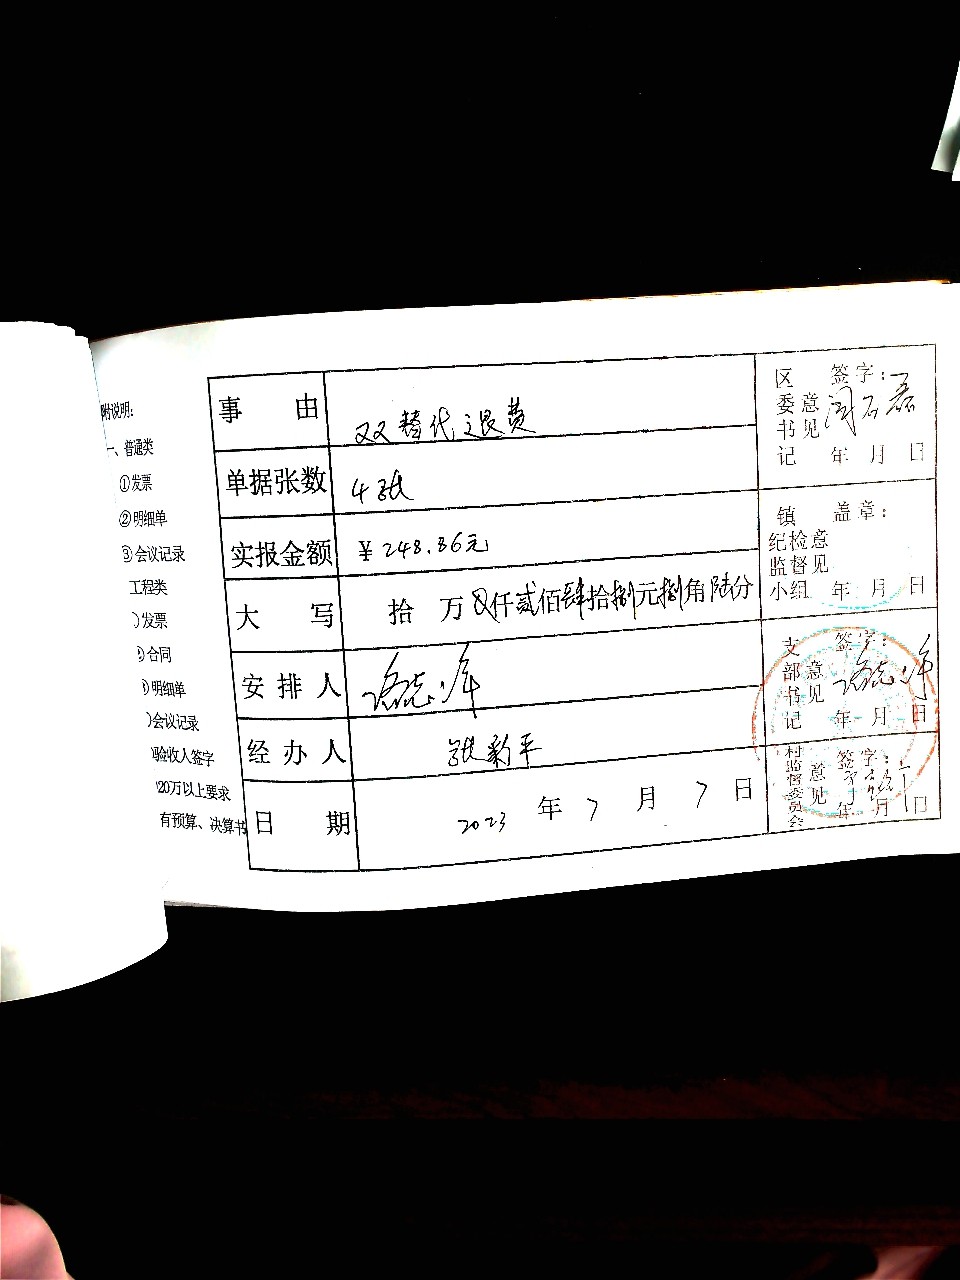 附说明:
一、普通类
①发票
②明细单
③会议记录
工程类
)发票
)合同
)明细单
)会议记录
验收人签字
20万以上要求
有预算、决算书
事由 双替代退费
单据张数 4张
实报金额 ¥248.86元
大写 拾 万 仟贰佰肆拾捌元捌角陆分
安排人
经办人 张新平
日期 2023年7月7日
区委书记意见 签字:
年 月 日
镇纪检监督小组意见 盖章:
年 月 日
支部书记意见 签字:
年 月 日
村监督委员会意见 签字:
年 月 日